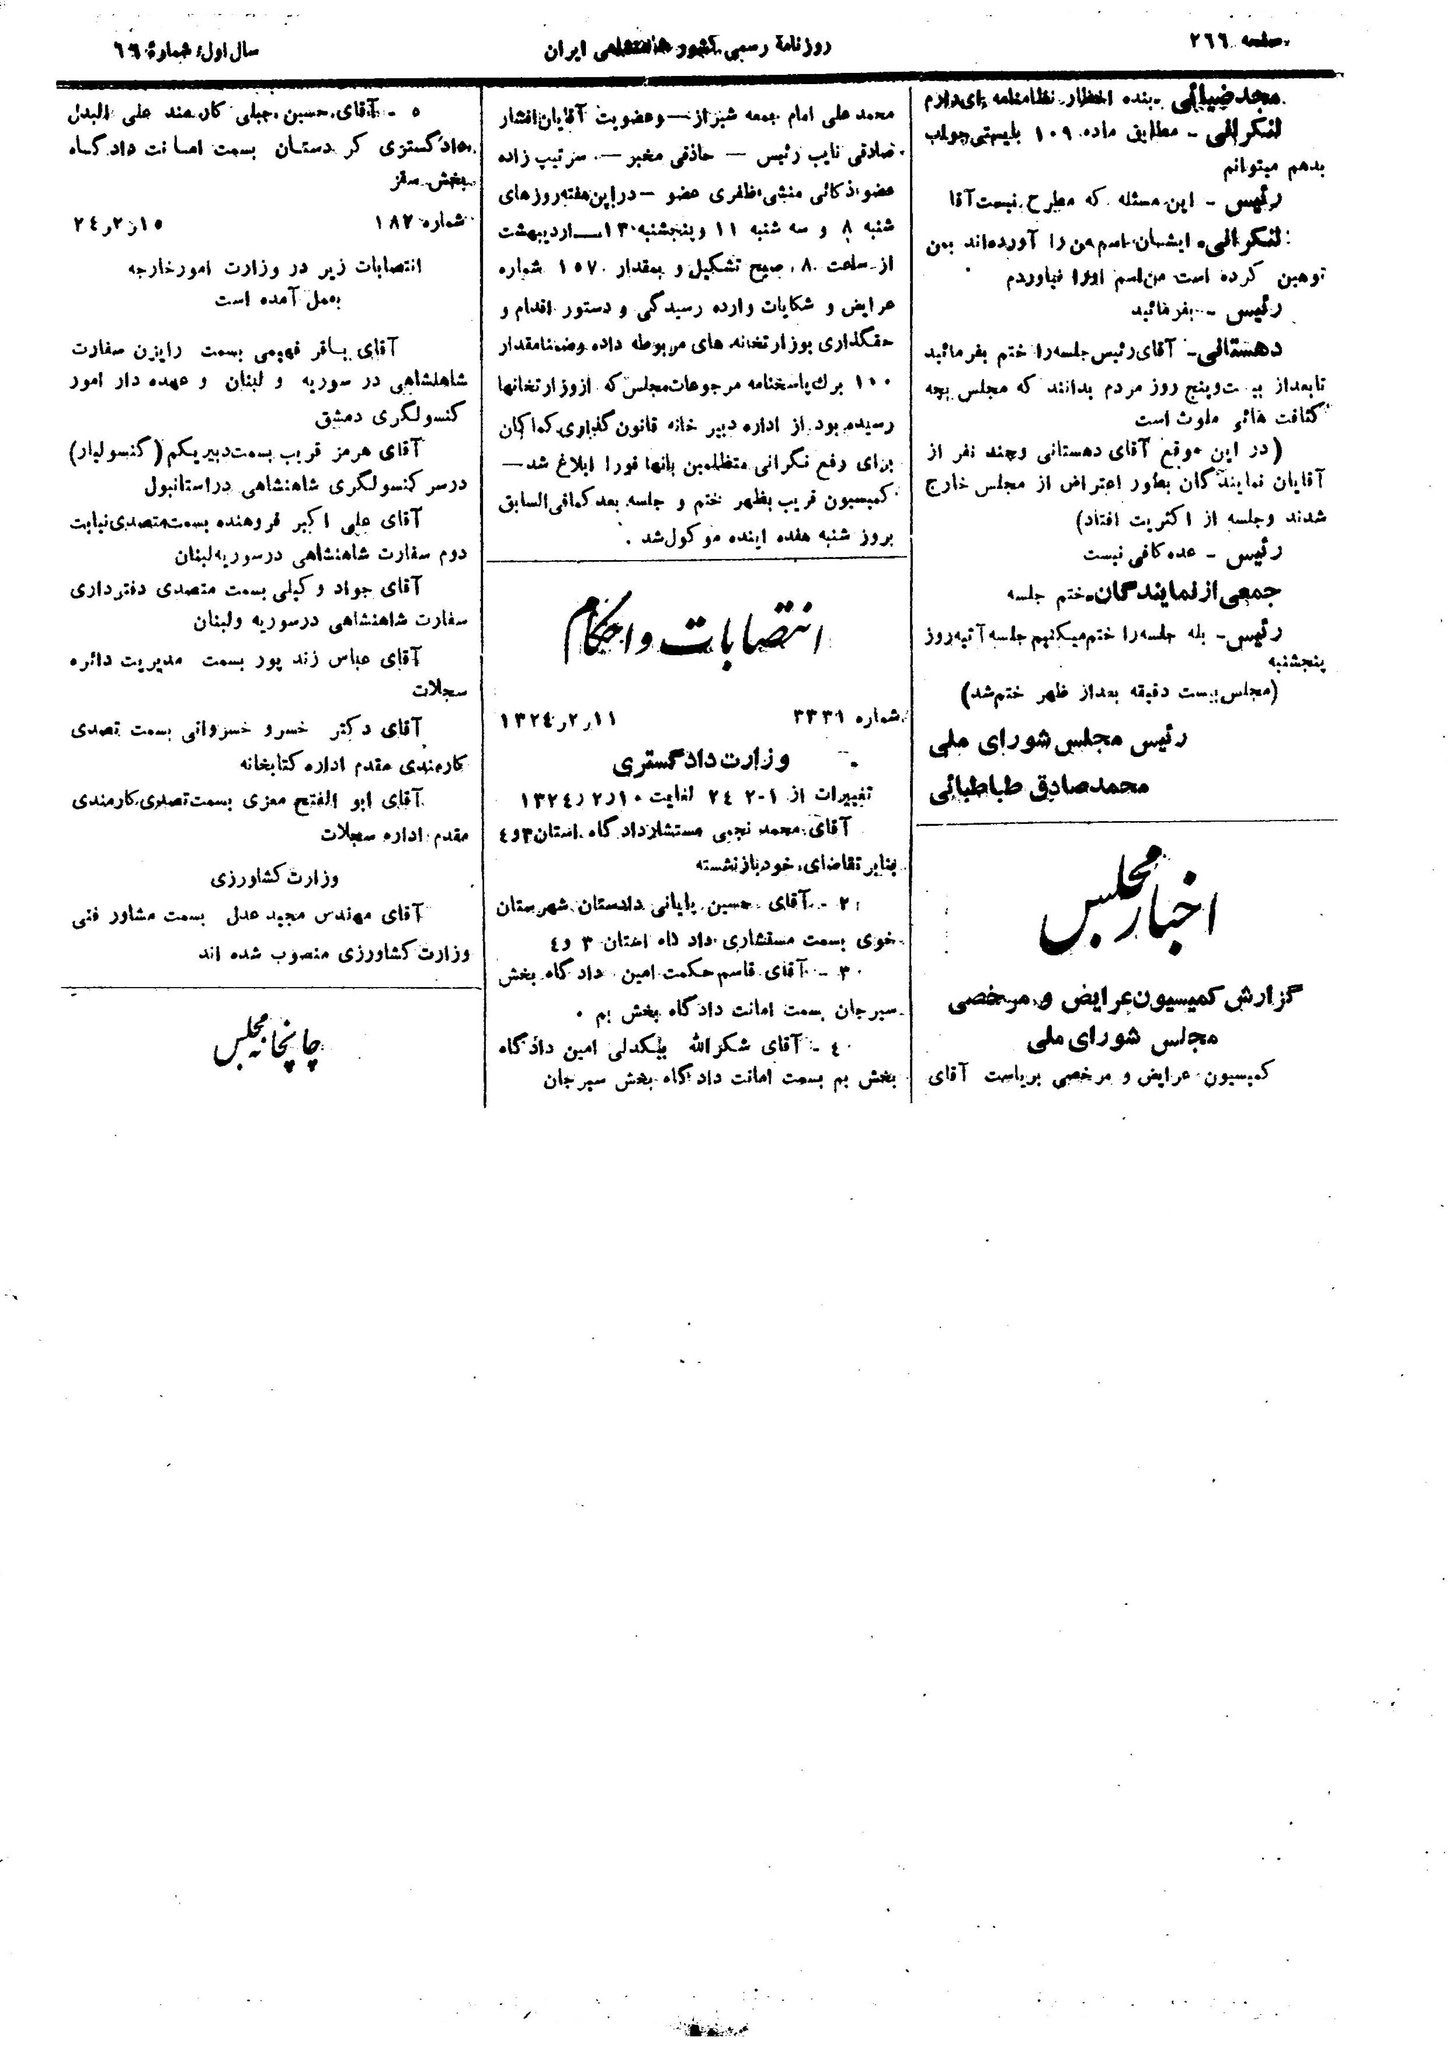 صفحه ۲٦٦
روزنامهٔ رسمی کشور شاهنشاهی ایران
سال اول، شمارهٔ
مجد ضیائی - بنده اخطار نظامنامه ای دارم
لنکرانی - مطابق ماده ۱۰۹ بایستی جواب
بدهم میتوانم
رئیس - این مسئله که مطرح نیست آقا
لنکرانی - ایشان اسم من را آورده‌اند بمن
توهین کرده است من اسم اورا نیاوردم
رئیس - بفرمائید
دهستانی - آقای رئیس جلسه را ختم بفرمائید
تابعداز بیست و پنج روز مردم بدانند که مجلس بچه
کثافت هائی ملوث است
(در این موقع آقای دهستانی و چند نفر از
آقایان نمایندگان بطور اعتراض از مجلس خارج
شدند وجلسه از اکثریت افتاد)
رئیس - عده کافی نیست
جمعی از نمایندگان - ختم جلسه
رئیس - بله جلسه را ختم میکنیم جلسه آتیه روز
پنجشنبه
(مجلس بیست دقیقه بعداز ظهر ختم شد)
رئیس مجلس شورای ملی
محمدصادق طباطبائی
اخبار مجلس
گزارش کمیسیون عرایض و مرخصی
مجلس شورای ملی
کمیسیون عرایض و مرخصی بریاست آقای
محمد علی امام جمعه شیراز — وعضویت آقایان افشار
صادقی نایب رئیس — حاذقی مخبر — سرتیپ زاده
عضو ذکائی منشی ظفری عضو — در این هفته روزهای
شنبه ۸ و سه شنبه ۱۱ و پنجشنبه ۱۳ — اردیبهشت
از ساعت ۸ صبح تشکیل و بمقدار ۱۵۷۰ شماره
عرایض و شکایات وارده رسیدگی و دستور اقدام و
حقگذاری بوزارتخانه های مربوطه داده وضمنا مقدار
۱۰۰ برك پاسخنامه مرجوعات مجلس که از وزارتخانها
رسیده بود از اداره دبیر خانه قانون گذاری کماکان
برای رفع نگرانی متظلمین بانها فورا ابلاغ شد —
کمیسیون قریب بظهر ختم و جلسه بعد کمافی السابق
بروز شنبه هفده اینده موکول شد .
انتصابات و احکام
شماره ۳۳۳۱ ۱۳۲٤ر۲ر۱۱
وزارت دادگستری
تغییرات از ۱-۲ ۲٤ لغایت ۱۰ر۲ر۱۳۲٤
آقای محمد نجمی مستشار دادگاه استان ۳ و ٤
بنابر تقاضای خود بازنشسته
۲ - آقای حسین پایانی دادستان شهرستان
خوی بسمت مستشاری داد گاه استان ۳ و ٤
۳ - آقای قاسم حکمت امین دادگاه بخش
سیرجان بسمت امانت دادگاه بخش بم .
٤ - آقای شکرالله بیکدلی امین دادگاه
بخش بم بسمت امانت دادگاه بخش سیرجان
۵ - آقای حسین جبلی کارمند علی البدل
دادگستری کردستان بسمت امانت دادگاه
بخش سقز
شماره ۱۸۲ ۱۵ر۲ر۲٤
انتصابات زیر در وزارت امور خارجه
بعمل آمده است
آقای باقر فهیمی بسمت رایزن سفارت
شاهنشاهی در سوریه و لبنان و عهده دار امور
کنسولگری دمشق
آقای هرمز قریب بسمت دبیر یکم (کنسولیار)
در سر کنسولگری شاهنشاهی در استانبول
آقای علی اکبر فروهنده بسمت متصدی نیابت
دوم سفارت شاهنشاهی در سوریه لبنان
آقای جواد وکیلی بسمت متصدی دفترداری
سفارت شاهنشاهی در سوریه ولبنان
آقای عباس زند پور بسمت مدیریت دائره
سجلات
آقای دکتر خسرو خسروانی بسمت تصدی
کارمندی مقدم اداره کتابخانه
آقای ابو الفتح معزی بسمت تصدی کارمندی
مقدم اداره سجلات
وزارت کشاورزی
آقای مهندس مجید عدل بسمت مشاور فنی
وزارت کشاورزی منصوب شده اند
چاپخانه مجلس